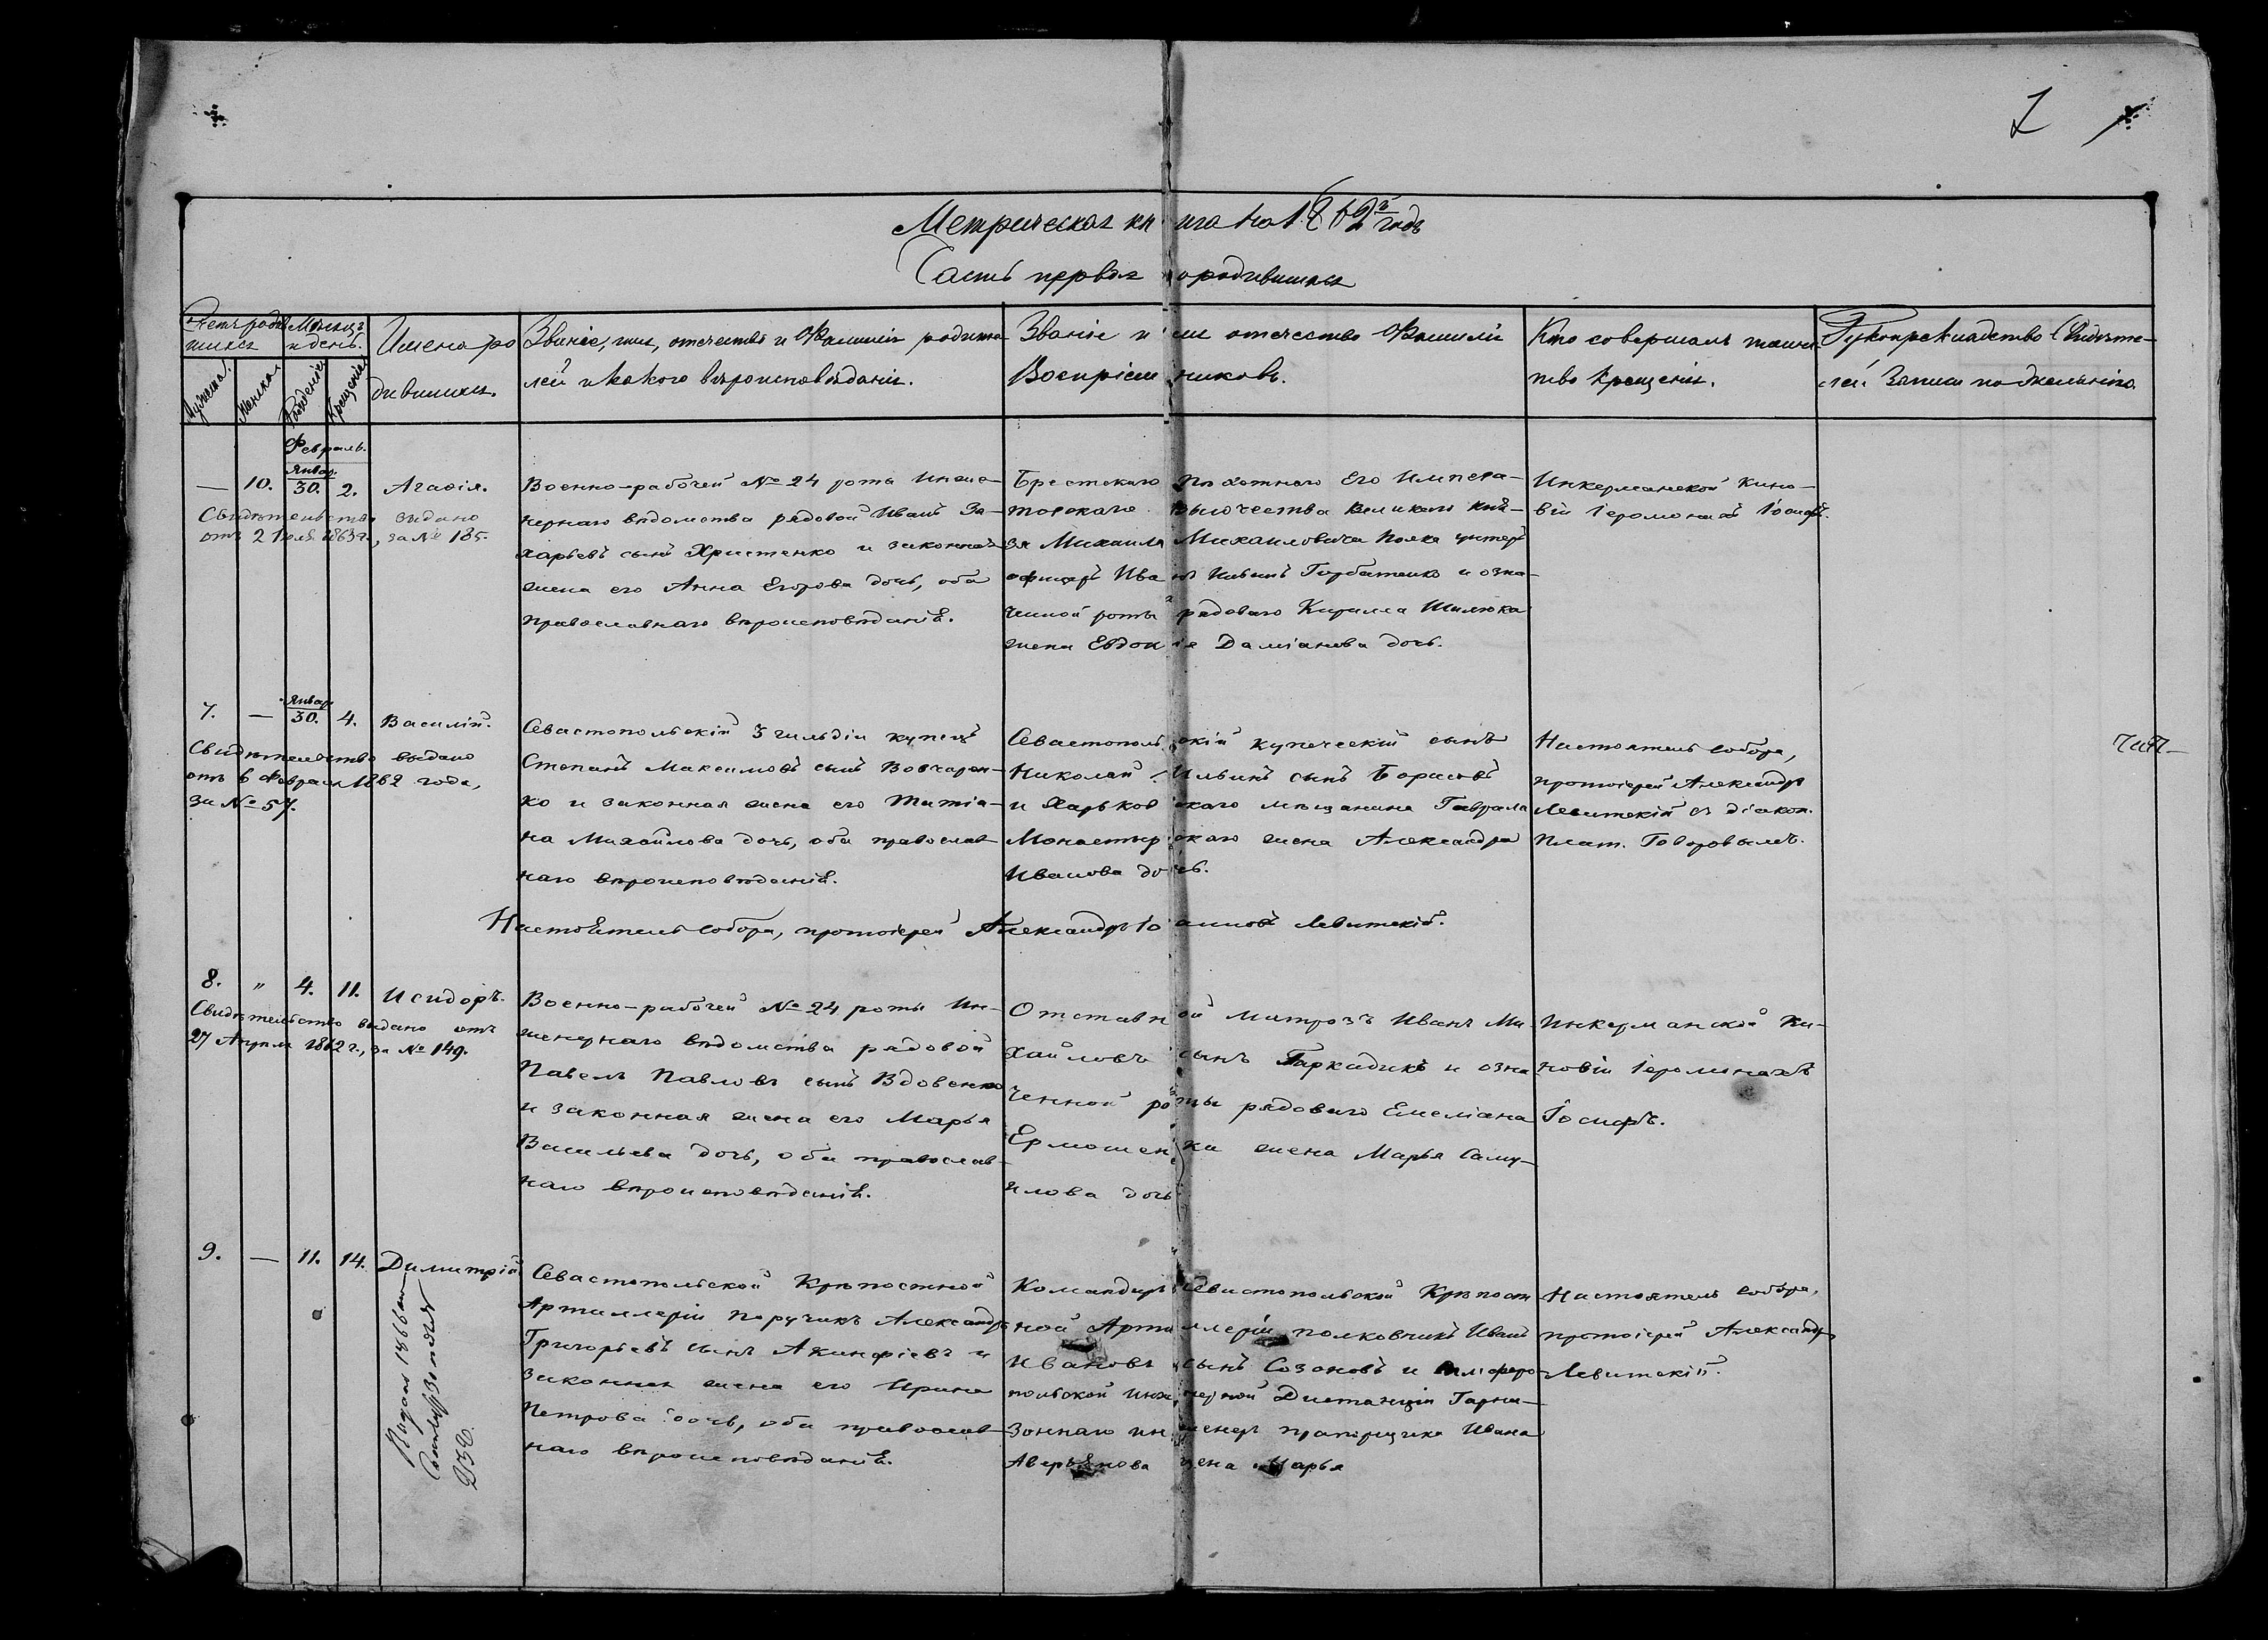 7
Метрическая книга на 1862й годъ
Часть первая о родившихся
Счетъ родившихся
Мужеска.
Женска.
Месяцъ и день.
Рожденія
Крещенія
Имена родившихся.
Званіе, имя, отечество и Фамилія родителей и какого вѣроисповѣданія.
Званіе имя отечество Фамилія
Воспріемниковъ.
Кто совершалъ таинство Крещенія.
Рукоприкладство Свидѣтелей Записи по желанію.
Февраль.
— 10. Январ. 30. 2. Агафія.
Свидѣтельство выдано
отъ 2 Іюля 1863 г., за № 185.
Военно-рабочей № 24 роты Инже-
нернаго вѣдомства рядовой Иванъ За-
харьевъ сынъ Христенко и законная
жена его Анна Егорова дочь, оба
православнаго вѣроисповѣданія.
Брестскаго пѣхотнаго Его Импера-
торскаго Высочества Великаго Кня-
зя Михаила Михаиловича полка унтеръ
офицеръ Иванъ Ильинъ Горбатенко и озна-
ченной роты рядоваго Кирилла Шилюка
жена Евдокія Даміанова дочь.
Инкерманской Кино-
віи Іеромонахъ Іосифъ.
7. — Январ. 30. 4. Василій.
Свидѣтельство выдано
отъ 6 Февраля 1862 года,
за № 57.
Севастопольскій 3 гильдіи купецъ
Степанъ Максимовъ сынъ Вовчарен-
ко и законная жена его Татіа-
на Михайлова дочь, оба православ-
наго вѣроисповѣданія.
Севастопольскій купеческій сынъ
Николай Ильинъ сынъ Борисовъ
и Харьковскаго мѣщанина Гаврила
Монастырскаго жена Александра
Иванова дочь.
Настоятель Собора,
протоіерей Александръ
Левитскій съ діакон.
Плат. Говоровымъ.
Настоятель Собора, протоіерей Александръ Іоанновъ Левитскій.
8. " 4. 11. Исидоръ.
Свидѣтельство выдано отъ
27 Апрѣля 1862 г., за № 149.
Военно-рабочей № 24 роты Ин-
женернаго вѣдомства рядовой
Павелъ Павловъ сынъ Вдовенко
и законная жена его Марья
Васильева дочь, оба православ-
наго вѣроисповѣданія.
Отставной матрозъ Иванъ Ми-
хайловъ сынъ Гаркадинъ и озна
ченной роты рядоваго Емеліана
Ермошенка жена Марья Саму-
илова дочь
Инкерманской Ки-
новіи Іеромонахъ
Іосифъ.
9. — 11. 14. Димитрій
Выдано 1866
за №
Севастопольской Крѣпостной
Артиллеріи поручикъ Александръ
Григорьевъ сынъ Акинфіевъ и
законная жена его Ирина
Петрова дочь, оба православ-
наго вѣроисповѣданія.
Командиръ Севастопольской Крѣпост
ной Артиллеріи полковникъ Иванъ
Ивановъ сынъ Созоновъ и Симферо-
польской Инженерной Дистанціи Гарни-
зоннаго инженер прапорщика Ивана
Аверьянова жена Марья
Настоятель Собора,
протоіерей Александръ
Левитскій.